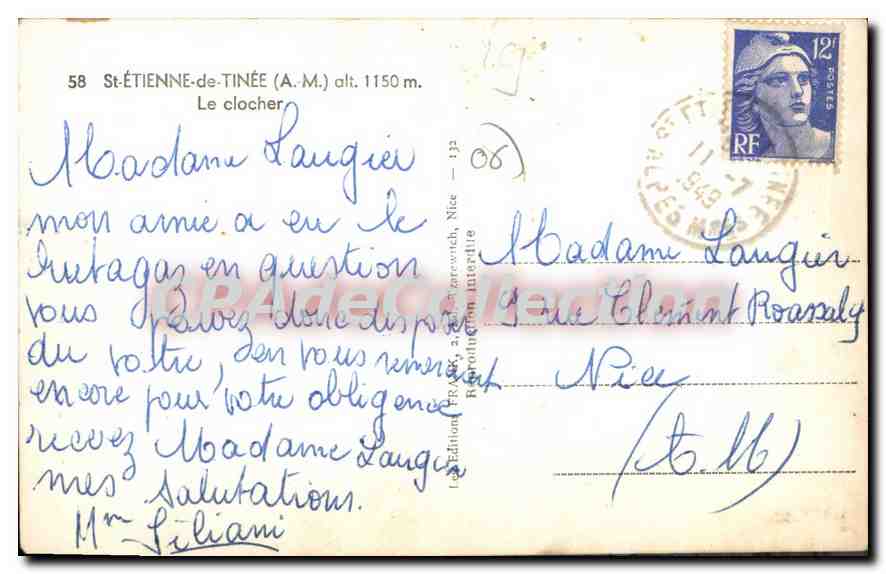 58 St-ÉTIENNE-de-TINÉE (A.-M.) alt. 1150 m.
Le clocher
Madame Laugier
mon amie a eu le
butagaz en question
vous pouvez donc disposer
du votre, en vous remerciant
encore pour votre obligence
recevez Madame Laugier
mes salutations.
Mme Giliani
Les Editions FRANK, 2, Nice — 132
Reproduction interdite
06
12F
POSTES
RF
11 -7
1949
Madame Laugier
9 rue Clement Roassal
Nice
(A. M)
CPAdeCollection.com